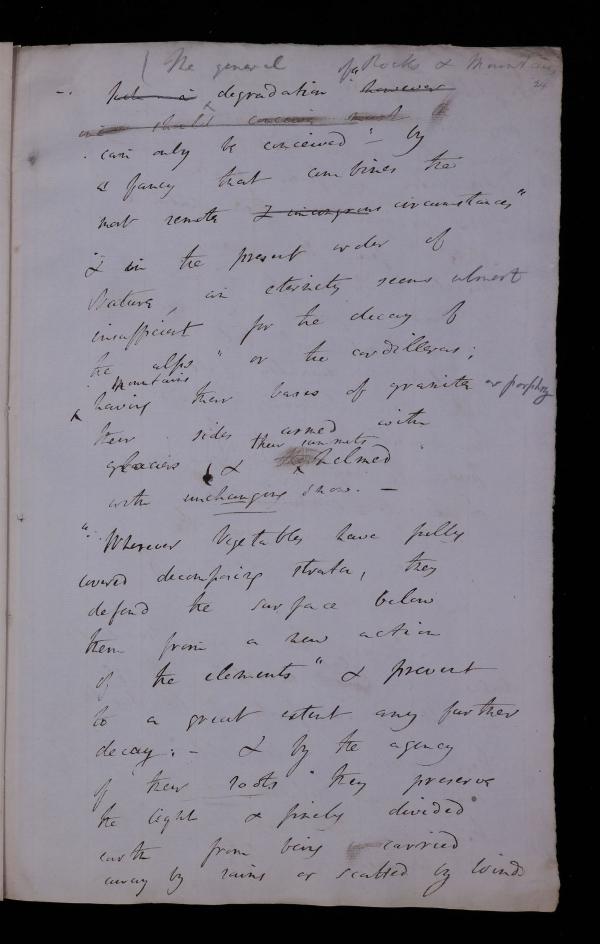 ( The general of "Rocks & Mountains
24
–. Such a degradation however
we should conceive must
can only be conceived" – by
a fancy that combines the
most remote & incongrous circumstances"
"& in the present order of
Nature, an eternity seems almost
insufficient for the decay of
the alps" or the cordilleras;
Mountains
having their bases of granite or porphyry
their sides armed with
their summits
glaciers & helmed"
with unchanging snow. –
"Wherever Vegetables have fully
covered decomposing strata, they
defend the surface below
them from a new action
of the elements" & prevent
to a great extent any further
decay. – & by the agency
of their roots "they preserve
the light & finely divided
earth from being carried
away by rains or scatterd by Winds